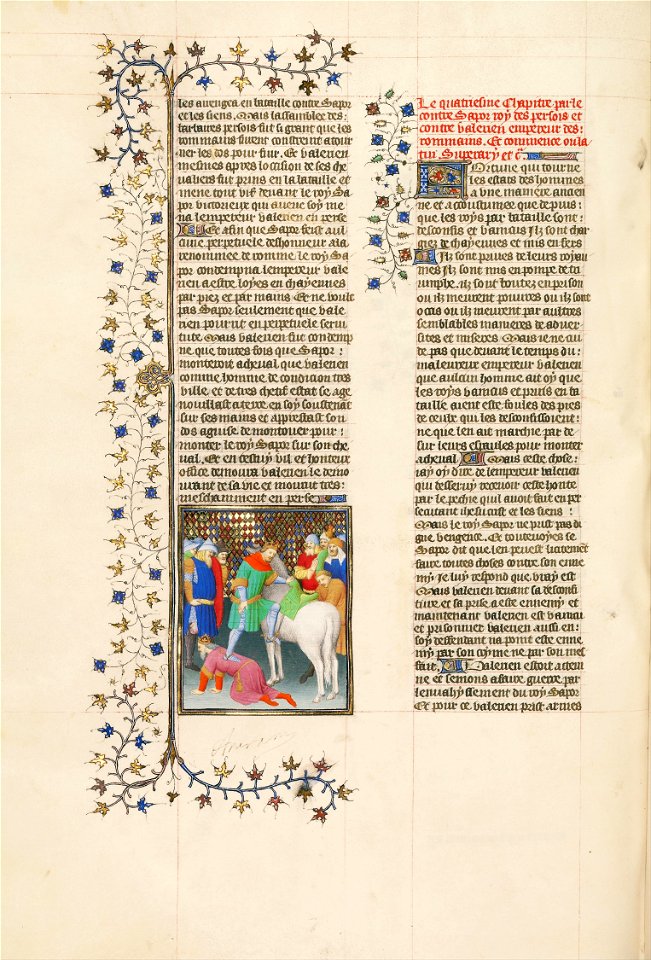 les avengea en bataille contre Sapor
et les siens. Mais lassamblee des
tartaires persois fut si grant que les
rommains furent contreins a tour
ner les dos pour fuir. Et valerien
mesmes apres locision de ses che
valiers fut prins en la bataille et
mene tout vif devant le roy Sa
por victorieux qui avenc soy me
na lempereur valerien en perse
Et afin que Sapor feist aul
cune perpetuele deshonneur a la
renommee de romme. le roy Sa
por contempna lempereur vale
rien a estre loyes en chayennes
par piez et par mains. Et ne voult
pas Sapor seulement que vale
rien pourrit en perpetuele servi
tute. Mais valerien fut condemp
ne que toutes fois que Sapor
monteroit a cheval que valerien
comme homme de condicion tres
ville et de tres chetif estat se age
noullast a terre en soy soustenant
sur ses mains et apprestast son
dos a guise de montouer pour
monter le roy Sapor sur son che
val. Et en cestuy vil et honteux
office demoura valerien le demo
urant de sa vie et mourut tres
meschamment en perse
Le quatriesme Chapitre parle
contre Sapor roy des persois et
contre valerien empereur des
rommains. Et commence ou la
tin.
Fortune qui tourne
les estas des hommes
a une maniere ancien
ne et acoustumee que depuis
que les roys par bataille sont
desconfis et vaincus Ilz sont char
giez de chayennes et mis en fers
Ilz sont prives de leurs royau
mes Ilz sont mis en pompe de tri
umphe. ilz sont boutez en prison
ou ilz meurent povures ou ilz sont
occis ou ilz meurent par aultres
semblables manieres de adver
sites et miseres. Mais ie ne cui
de pas que devant le temps du
maleureux empereur valerien
que aulcun homme ait oy que
les roys vaincus et prins en ba
taille aient este foules des pies
de ceulx qui les desconfissoient
ne que len ait marchie par de
sur leurs espaules pour monter
a cheval Mais ceste chose
iay oy dire de lempereur valerien
qui desservy recevoir ceste honte
par le pechie quil avoit fait en per
secutant ihesucrist et les siens
Mais le roy Sapor ne prist pas di
gne vengence. Et toutevoyes se
Sapor dit que len puest licitement
faire toutes choses contre son enne
my Je luy respond que vray est
Mais valerien devant sa desconfi
ture et sa prise a este ennemy et
maintenant valerien est vaincu
et prisonnier valerien aussi en
soy deffendant na point este enne
my par son crisme ne par son mes
fait. Valerien estoit attem
ne et semons a faire guerre par
lenvahyssement du roy Sapor
Et pour ce valerien prist armes